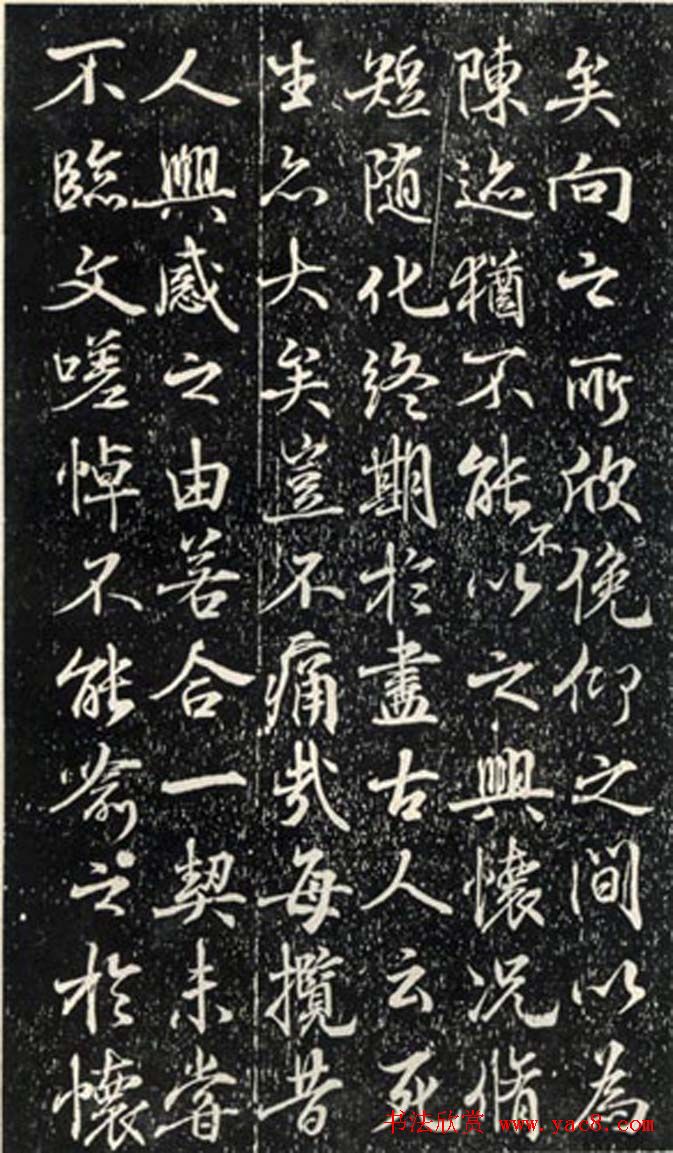 矣向之所欣俛仰之閒以為
陳迹猶不能不以之興懷況脩
短随化終期於盡古人云死
生亦大矣豈不痛哉每攬昔
人興感之由若合一契未嘗
不臨文嗟悼不能喻之於懷
书法欣赏 www.yac8.com